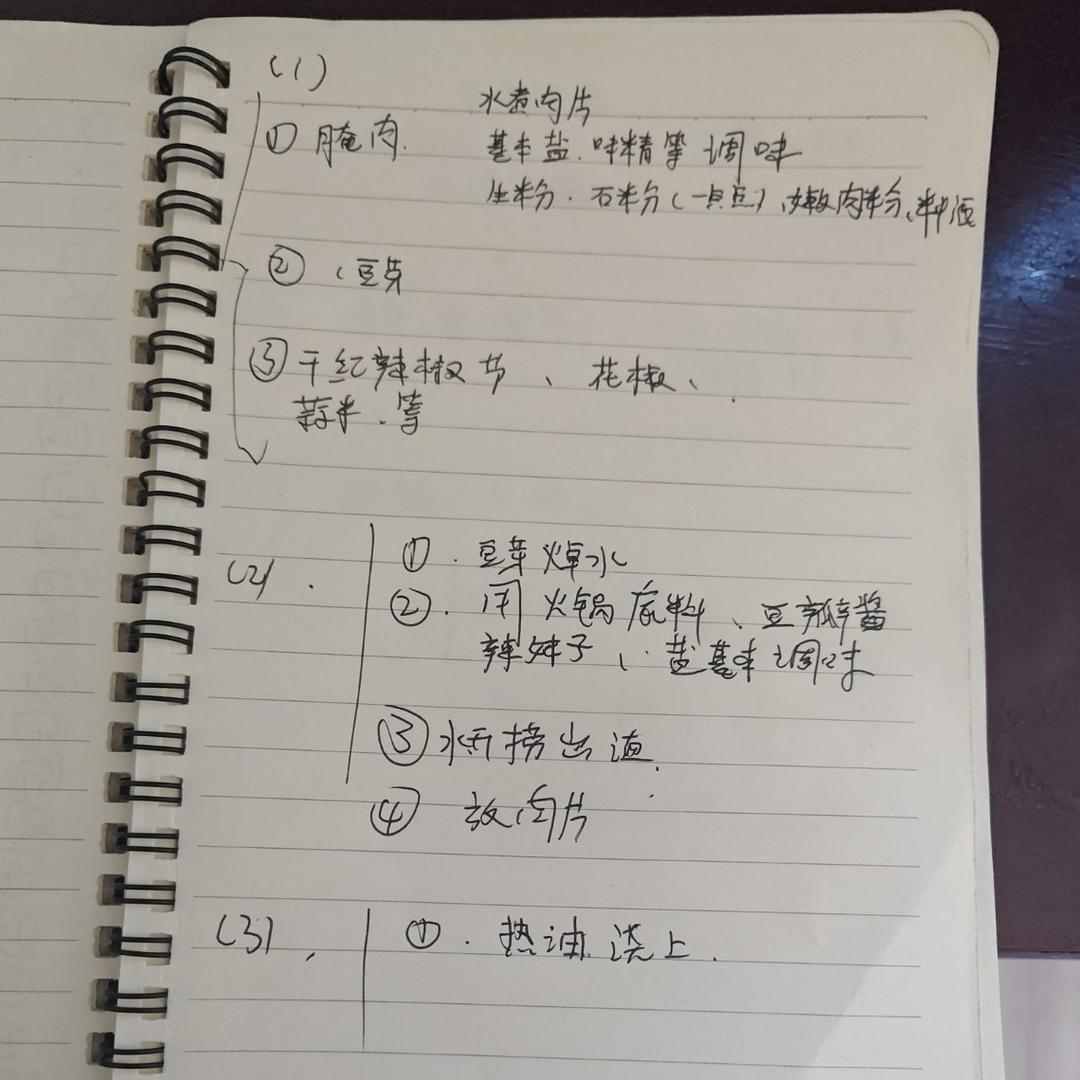 (1)
水煮肉片
① 腌肉. 基本盐.味精等调味
生粉.石粉(一点点)、嫩肉粉、料酒
② 、豆芽
③ 干红辣椒节、花椒、
蒜米.等
(2).
①.豆芽焯水
②.用火锅底料、豆瓣酱
辣妹子、盐基本调味
③ 水开捞出渣.
④ 放肉片
(3). ①.热油浇上.